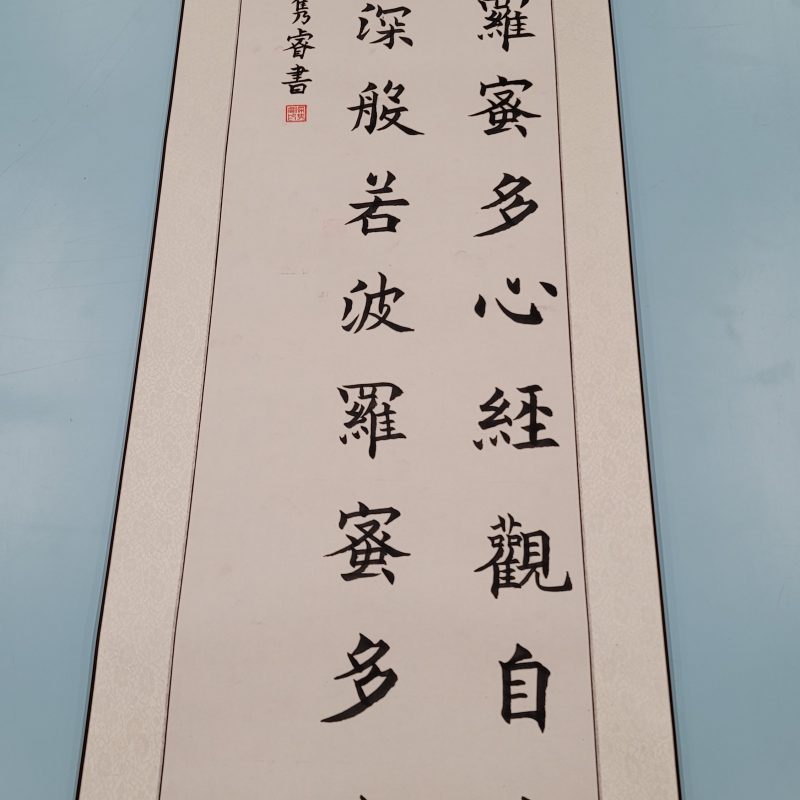 羅蜜多心經觀自
深般若波羅蜜多
雋睿書